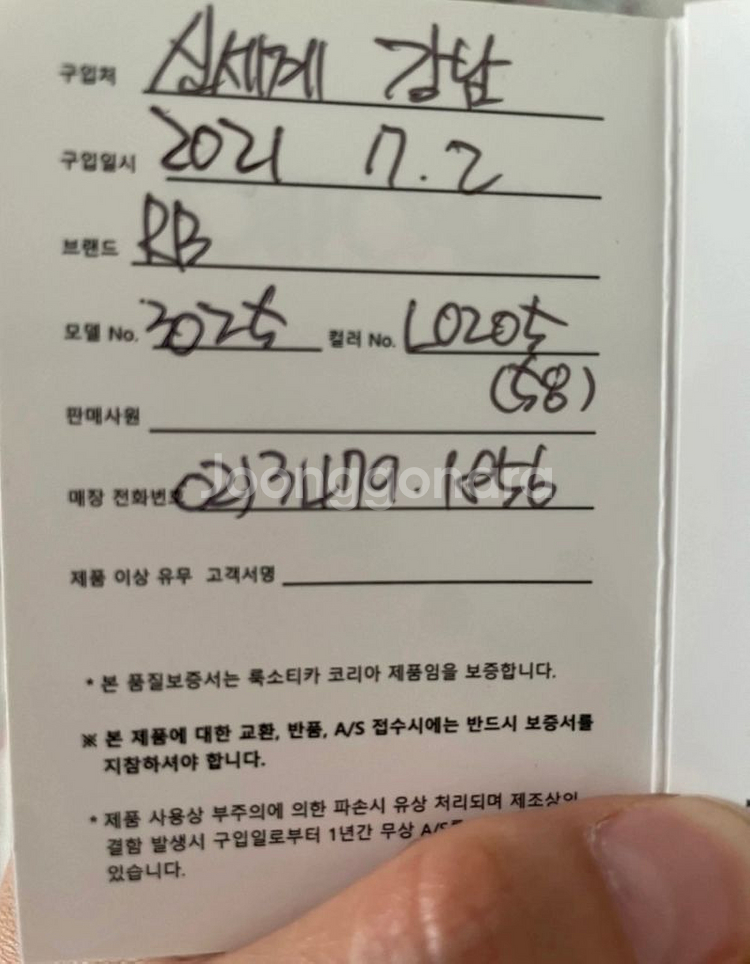 구입처 신세계 강남
구입일시 2021 7. 2
브랜드 RB
모델 No. 3025 컬러 No. L0205
(58)
판매사원
매장 전화번호 02)3479.1856
Joonggonara
제품 이상 유무 고객서명
* 본 품질보증서는 룩소티카 코리아 제품임을 보증합니다.
※ 본 제품에 대한 교환, 반품, A/S 접수시에는 반드시 보증서를
지참하셔야 합니다.
* 제품 사용상 부주의에 의한 파손시 유상 처리되며 제조상의
결함 발생시 구입일로부터 1년간 무상 A/S를
있습니다.